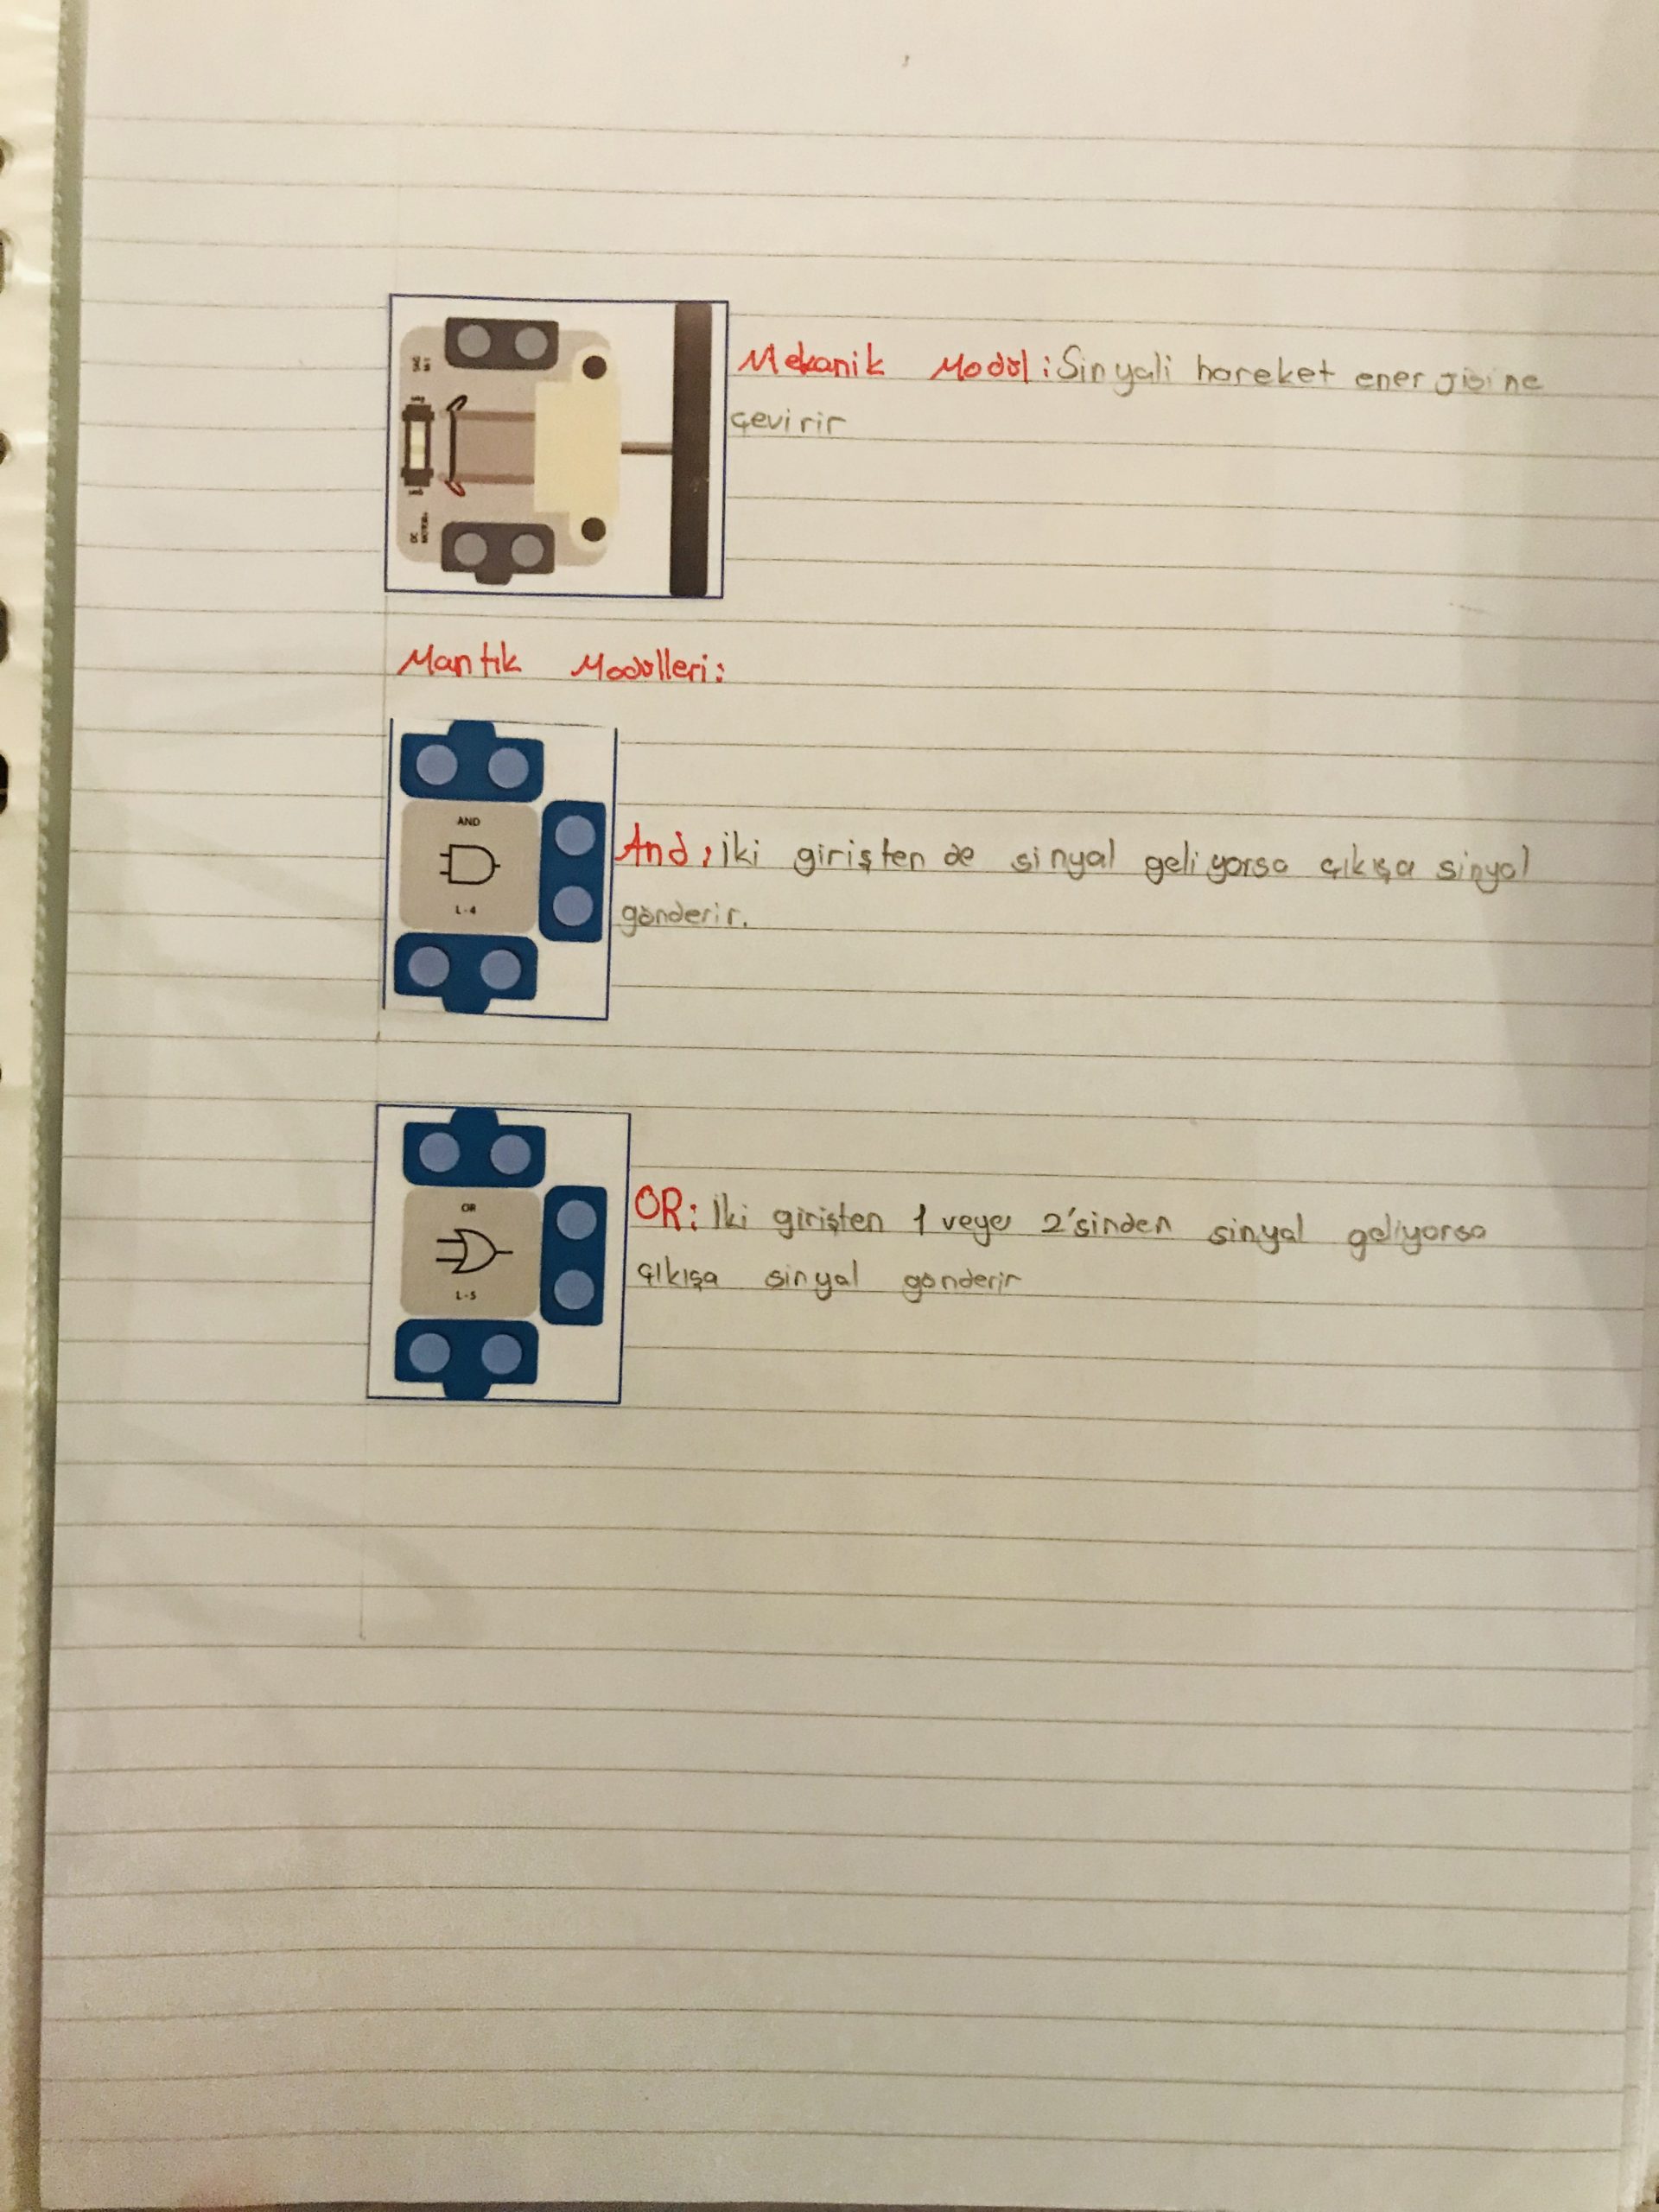 Mekanik Modül: Sinyali hareket enerjisine
çevirir
DC
MOTOR
Mantık Modülleri:
AND
L-4
And: İki girişten de sinyal geliyorsa çıkışa sinyal
gönderir.
OR
L-5
OR: İki girişten 1 veya 2'sinden sinyal geliyorsa
çıkışa sinyal gönderir